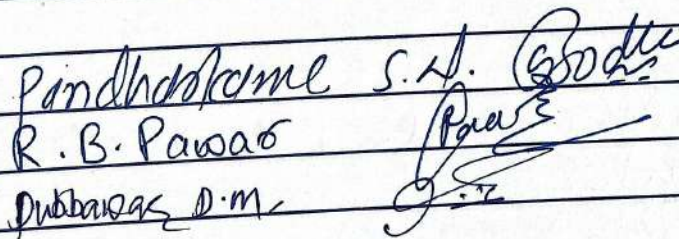 Pandharkame S.D.
R.B. Pawar
Dubbawar D.M.